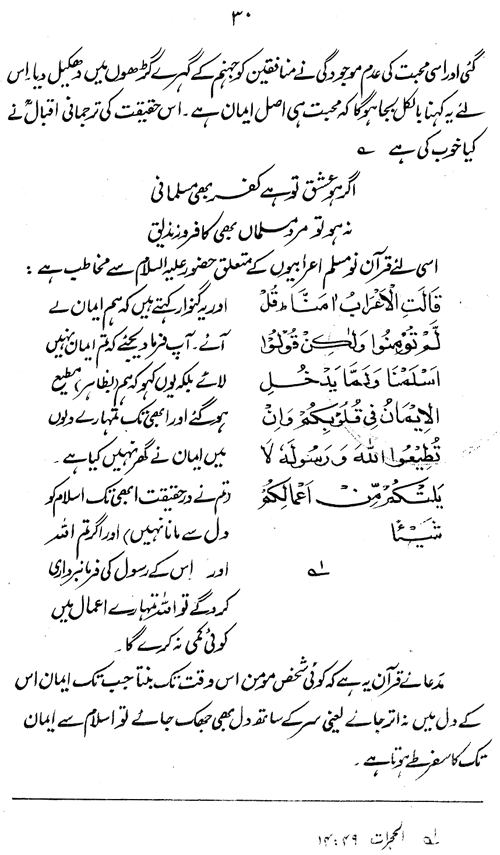 ۳۰
گئی اور اسی محبت کی عدم موجودگی نے منافقین کو جہنم کے گہرے گڑھوں میں دھکیل دیا۔ اِس
لئے یہ کہنا بالکل بجا ہوگا کہ محبت ہی اصل ایمان ہے۔ اس حقیقت کی ترجمانی اقبالؒ نے
کیا خوب کی ہے ؎
اگر ہو عشق تو ہے کفر بھی مسلمانی
نہ ہو تو مردِ مسلماں بھی کافر و زندیق
اسی لئے قرآن نو مسلم اعرابیوں کے متعلق حضور علیہ السلام سے مخاطب ہے :
قَالَتِ الْاَعْرَابُ اٰمَنَّا ط قُلْ
لَّمْ تُؤْمِنُوْا وَلٰكِنْ قُوْلُوْٓا
اَسْلَمْنَا وَلَمَّا يَدْخُلِ
الْاِيْمَانُ فِىْ قُلُوْبِكُمْ وَاِنْ
تُطِيْعُوا اللّٰهَ وَرَسُوْلَهٗ لَا
يَلِتْكُمْ مِّنْ اَعْمَالِكُمْ
شَيْئًا
۱؎
اور یہ گنوار کہتے ہیں کہ ہم ایمان لے
آئے۔ آپ فرما دیجئے کہ تم ایمان نہیں
لائے بلکہ یوں کہو کہ ہم (بظاہر) مطیع
ہو گئے اور ابھی تک تمہارے دلوں
میں ایمان نے گھر نہیں کیا ہے۔
(تم نے درحقیقت ابھی تک اسلام کو
دل سے مانا نہیں) اور اگر تم اللہ
اور اس کے رسول کی فرمانبرداری
کرو گے تو اللہ تمہارے اعمال میں
کوئی کمی نہ کرے گا۔
مدعائے قرآن یہ ہے کہ کوئی شخص مومن اس وقت تک بنتا جب تک ایمان اس
کے دل میں نہ اتر جائے یعنی سر کے ساتھ دل بھی جھک جائے تو اسلام سے ایمان
تک کا سفر طے ہوتا ہے۔
۱؎ الحجرات ۱۴:۴۹